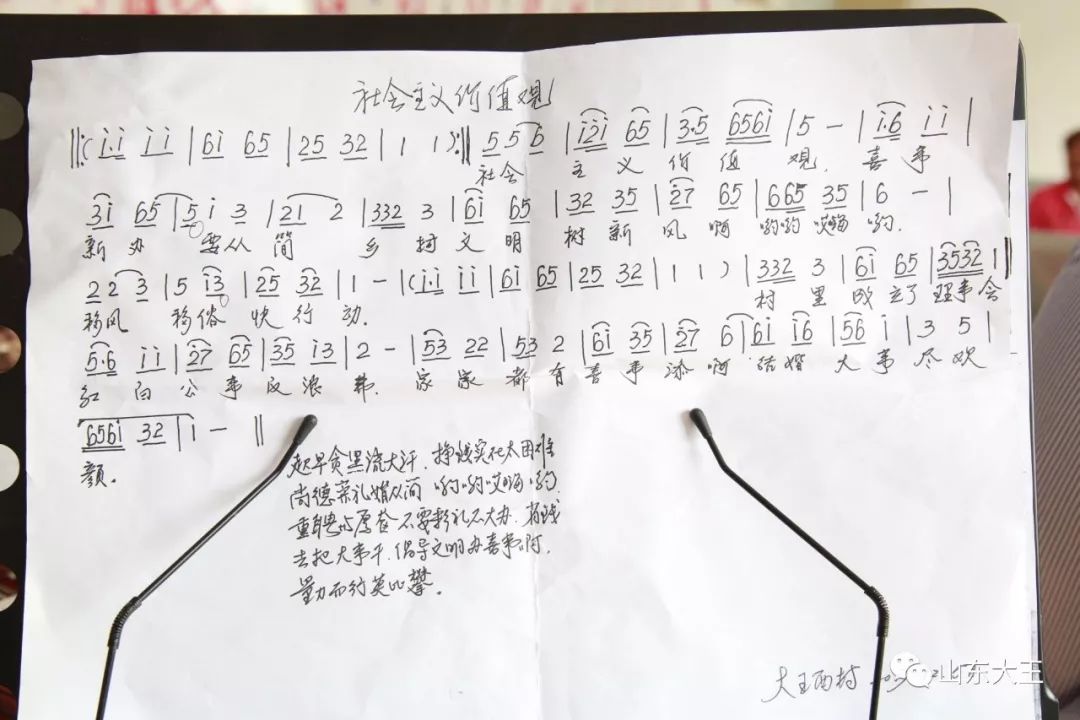 社会主义价值观
‖:( i.i i i | 6i 65 | 25 32 | 1 1 ):‖ 5 5 6 | i2i 65 | 3.5 656i | 5 - | i.6 i i |
社会 主义价值观. 喜事
3i 65 | 5 i 3 | 21 2 | 332 3 | 6i 65 | 32 35 | 27 65 | 665 35 | 6 - |
新办 要从简 乡村文明 树新风啊 哟哟哎嗨哟.
22 3 | 5 i3 | 25 32 | 1 - | ( i.i i i | 6i 65 | 25 32 | 1 1 ) | 332 3 | 6i 65 | 3532 1 ‖
移风 移俗快行动. 村里成立了理事会
5.6 i i | 27 65 | 35 i3 | 2 - | 53 22 | 53 2 | 6i 35 | 27 6 | 6i i6 | 56 i | 3 5 |
红白公事反浪费. 家家都有喜事添啊结婚大事尽欢
656i 32 | i - ‖
颜.
起早贪黑流大汗. 挣钱实在太困难
尚德菜礼婚从简 哟哟哎嗨哟.
重聘与厚 不要彩礼不大办. 省钱
去把大事干. 倡导文明办喜事啊.
量力而行莫比攀.
大王西村
山东大王